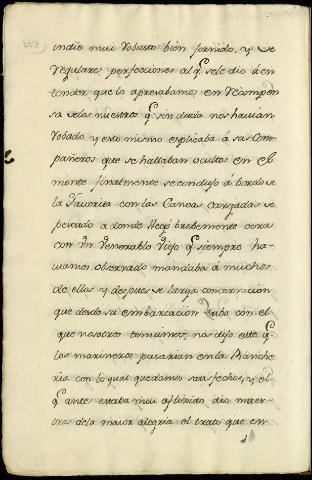 indio mui robusto bien fornido, y de
regulares perfecciones al q.e se le dio á en
tender que lo apresabamos en recompen
sa de los nuestros q.e sin duda nos havian
robado y esto mismo explicaba á sus Com
pañeros que se hallaban ocultos en el
monte finalmente se condujo á bordo de
la Favorita con las Canoas cargadas de
pescado a donde llegó brebemente otra
con Un Venerable Viejo q.e siempre ha
viamos observado mandaba á muchos
de ellos y despues de larga concertacion
que desde su embarcacion tubo con el
que nosotros teniamos, nos dijo este q.e
los marineros pasarian en la Ranche
ria con lo qual quedamos satisfechos, y el
q.e antes estaba mui afligido, dio mues
tras de la maior alegria el trato que en